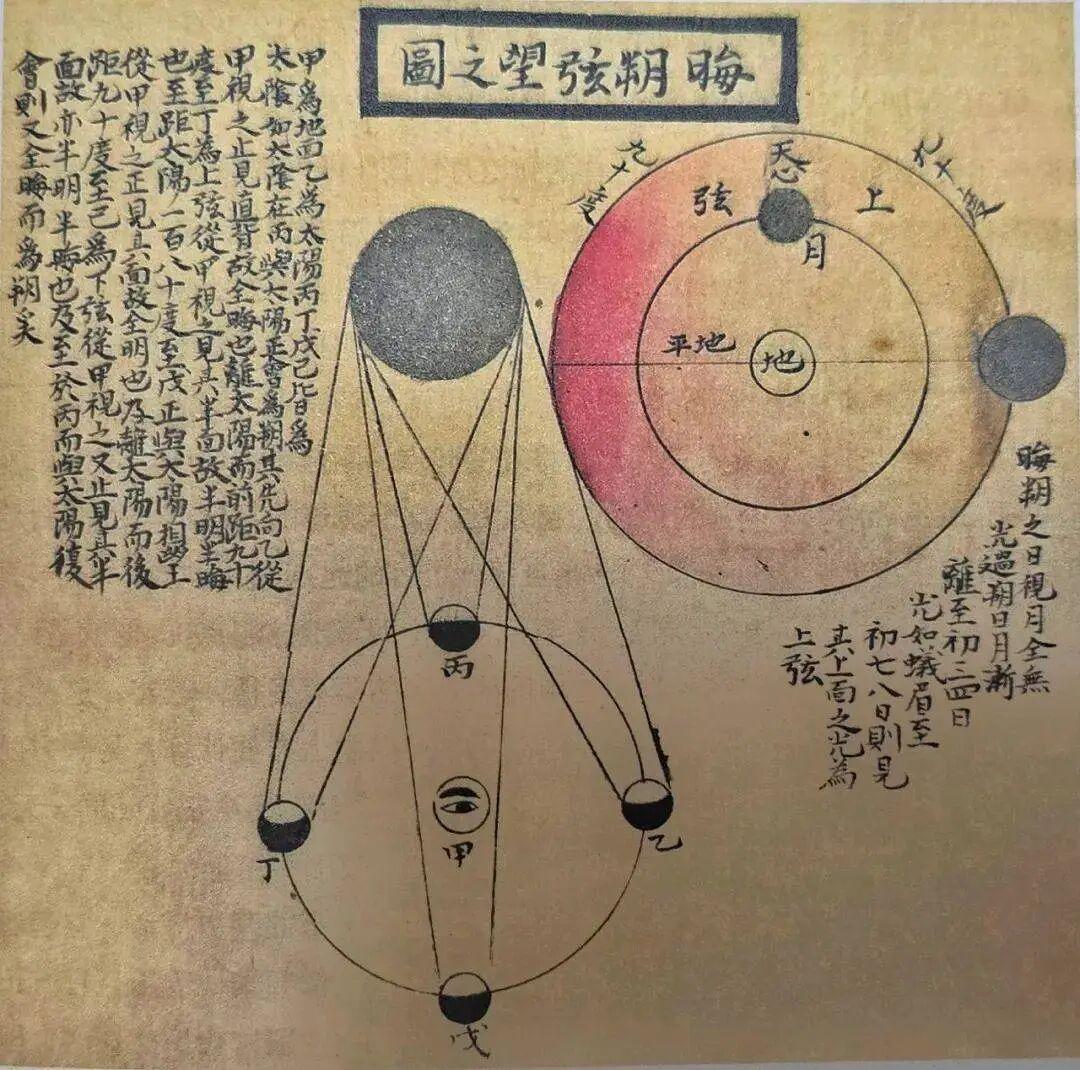 晦朔弦望之圖
甲爲地面乙爲太陽丙丁戊己皆爲
太陰如太陰在丙與太陽正會爲朔其光向乙從
甲視之止見道背故全晦也離太陽而前距九十
度至丁為上弦從甲視之見其半面故半明半晦
也至距太陽一百八十度至戊正與太陽相望
從甲視之正見其面故全明也乃離太陽而後
距九十度至己為下弦從甲視之又止見其半
面故亦半明半晦也及至於丙而與太陽復
會則又全晦而爲朔矣
九十度
九十度
天心
上弦
月
地平
地
晦朔之日視月全無
光過朔日月漸
離至初三四日
光如蟻眉至
初七八日則見
其上面之光為
上弦
丙
甲
丁
乙
戊